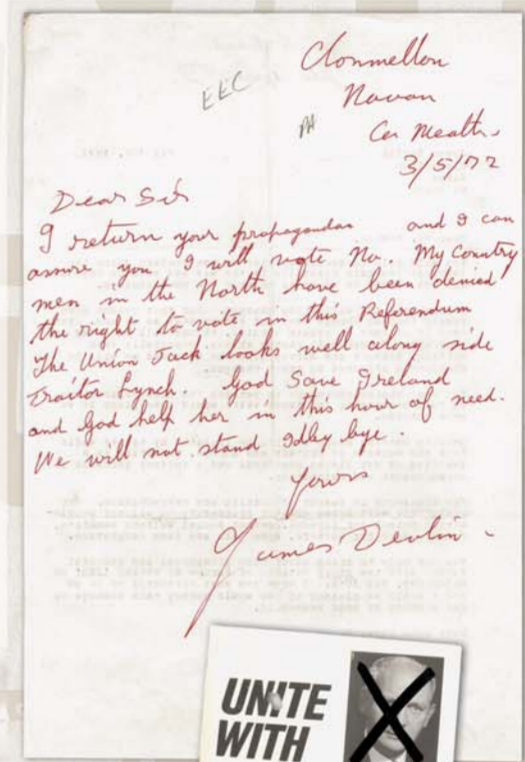 Clonmellon
EEC
Navan
Co Meath
3/5/72
Dear Sir
I return your propagandar and I can
assure you I will vote No. My Country
men in the North have been denied
the right to vote in this Referendum
The Union Jack looks well along side
Traitor Lynch. God Save Ireland
and God help her in this hour of need.
We will not stand Idley bye.
Yours
James Devlin
UNITE
WITH